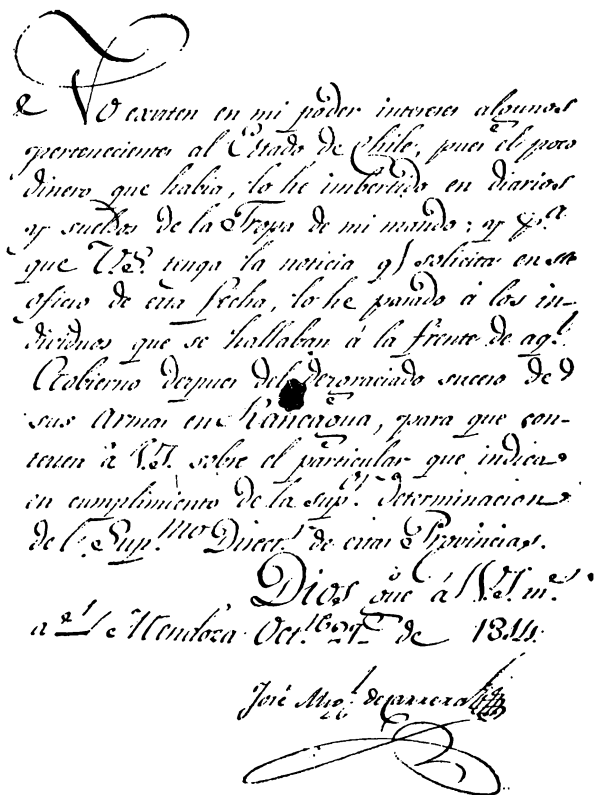 No existen en mi poder intereses algunos
pertenecientes al Estado de Chile, pues el poco
dinero que habia, lo he imbertido en diarios
y sueldos de la Tropa de mi mando; y pª
que V.S. tenga la noticia q/ solicita en su
oficio de esta fecha, lo he pasado á los in-
dividuos que se hallaban á la frente de aql.
Gobierno despues del desgraciado suceso de
sus Armas en Rancagua, para que con-
testen á V.S. sobre el particular que indica
en cumplimiento de la supr. determinacion
del Supmo Directr. de estas Provincias.
Dios gũe á V.S. ms.
as Mendoza Octe. 27 de 1814.
José Migl. de Carrera